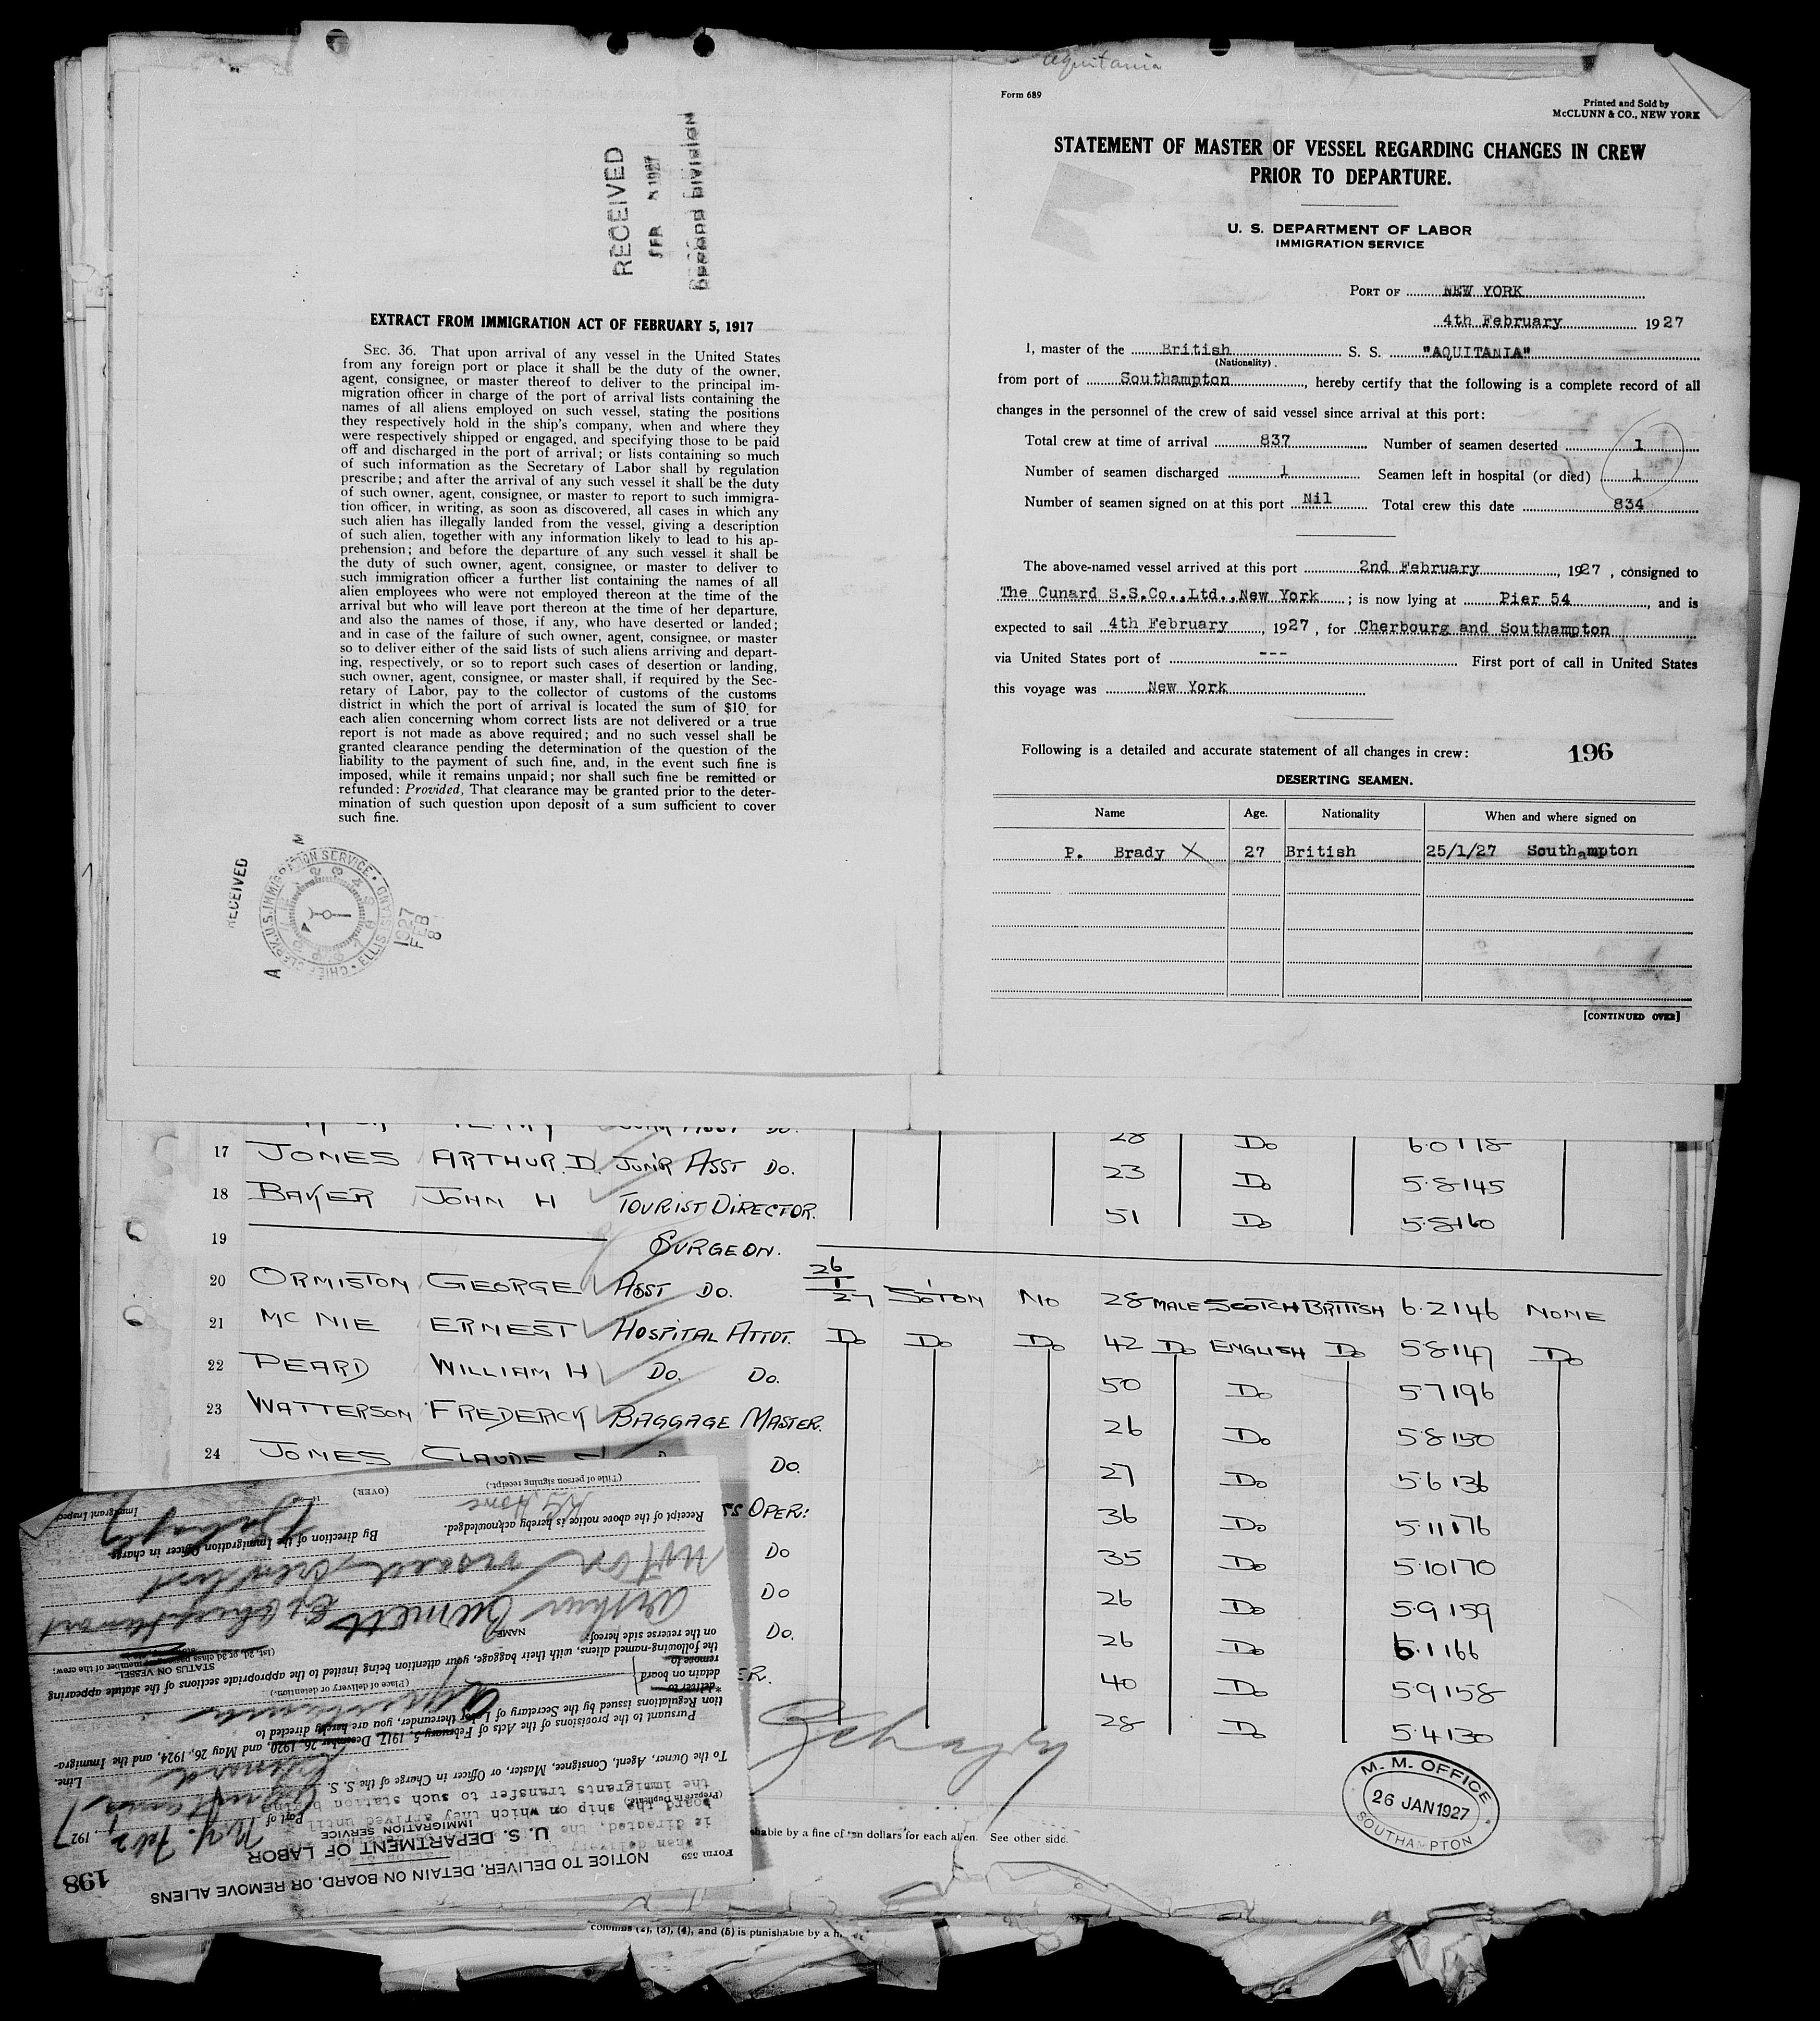 Aquitania
RECEIVED
FEB 8 1927
Record Division
EXTRACT FROM IMMIGRATION ACT OF FEBRUARY 5, 1917
SEC. 36. That upon arrival of any vessel in the United States
from any foreign port or place it shall be the duty of the owner,
agent, consignee, or master thereof to deliver to the principal im-
migration officer in charge of the port of arrival lists containing the
names of all aliens employed on such vessel, stating the positions
they respectively hold in the ship's company, when and where they
were respectively shipped or engaged, and specifying those to be paid
off and discharged in the port of arrival; or lists containing so much
of such information as the Secretary of Labor shall by regulation
prescribe; and after the arrival of any such vessel it shall be the duty
of such owner, agent, consignee, or master to report to such immigra-
tion officer, in writing, as soon as discovered, all cases in which any
such alien has illegally landed from the vessel, giving a description
of such alien, together with any information likely to lead to his ap-
prehension; and before the departure of any such vessel it shall be
the duty of such owner, agent, consignee, or master to deliver to
such immigration officer a further list containing the names of all
alien employees who were not employed thereon at the time of the
arrival but who will leave port thereon at the time of her departure,
and also the names of those, if any, who have deserted or landed;
and in case of the failure of such owner, agent, consignee, or master
so to deliver either of the said lists of such aliens arriving and depart-
ing, respectively, or so to report such cases of desertion or landing,
such owner, agent, consignee, or master shall, if required by the Sec-
retary of Labor, pay to the collector of customs of the customs
district in which the port of arrival is located the sum of $10 for
each alien concerning whom correct lists are not delivered or a true
report is not made as above required; and no such vessel shall be
granted clearance pending the determination of the question of the
liability to the payment of such fine, and, in the event such fine is
imposed, while it remains unpaid; nor shall such fine be remitted or
refunded: Provided, That clearance may be granted prior to the deter-
mination of such question upon deposit of a sum sufficient to cover
such fine.
RECEIVED
CHIEF CLERK, U.S. IMMIGRATION SERVICE • ELLIS ISLAND
1927
FEB
8
A M
Form 689
Printed and Sold by
McCLUNN & CO., NEW YORK
STATEMENT OF MASTER OF VESSEL REGARDING CHANGES IN CREW
PRIOR TO DEPARTURE.
U. S. DEPARTMENT OF LABOR
IMMIGRATION SERVICE
PORT OF NEW YORK
4th February 1927
I, master of the British S. S. "AQUITANIA"
(Nationality)
from port of Southampton, hereby certify that the following is a complete record of all
changes in the personnel of the crew of said vessel since arrival at this port:
Total crew at time of arrival 837 Number of seamen deserted 1
Number of seamen discharged 1 Seamen left in hospital (or died) 1
Number of seamen signed on at this port Nil Total crew this date 834
The above-named vessel arrived at this port 2nd February, 1927, consigned to
The Cunard S.S.Co.,Ltd.,New York; is now lying at Pier 54, and is
expected to sail 4th February, 1927, for Cherbourg and Southampton
via United States port of --- First port of call in United States
this voyage was New York
Following is a detailed and accurate statement of all changes in crew: 196
DESERTING SEAMEN.
Name Age. Nationality When and where signed on
P. Brady X 27 British 25/1/27 Southampton
[CONTINUED OVER]
28 Do 6.0 178
17 JONES ARTHUR.D. JUNR ASST DO. 23 Do 5.8 145
18 BAKER JOHN H TOURIST DIRECTOR. 51 Do 5.8 160
19 SURGEON.
20 ORMISTON GEORGE ASST DO. 26/1/27 S'OTON NO 28 MALE SCOTCH BRITISH 6.2 146 NONE
21 MC NIE ERNEST HOSPITAL ATTDT. Do Do Do 42 Do ENGLISH Do 5.8 147 Do
22 PEARD WILLIAM H Do. Do. 50 Do 5.7 196
23 WATTERSON FREDERICK BAGGAGE MASTER. 26 Do 5.8 150
24 JONES CLAUDE Do. 27 Do 5.6 136
SS OPER: 36 Do 5.11 176
Do 35 Do 5.10 170
Do 26 Do 5.9 159
Do. 26 Do 6.1 166
ER. 40 Do 5.9 158
28 Do 5.4 130
M. M. OFFICE
26 JAN 1927
SOUTHAMPTON
shable by a fine of ten dollars for each alien. See other side.
columns (2), (3), (4), and (5) is punishable by a
198
Form 559
NOTICE TO DELIVER, DETAIN ON BOARD, OR REMOVE ALIENS
U. S. DEPARTMENT OF LABOR
IMMIGRATION SERVICE
(Prepare in Duplicate)
Port of N.Y. Feb 2, 1927
To the Owner, Agent, Consignee, Master, or Officer in Charge of the S. S. Aquitania
Cunard Line.
Pursuant to the provisions of the Acts of February 5, 1917, December 26, 1920, and May 26, 1924, and the Immigra-
tion Regulations issued by the Secretary of Labor thereunder, you are hereby directed to
*deliver to
detain on board
remove to
Aquitania
(Place of delivery or detention.)
the following-named aliens, with their baggage, your attention being invited to the appropriate sections of the statute appearing
on the reverse side hereof:
NAME
STATUS ON VESSEL
(1st, 2d, or 3d class passenger, member of the crew,
Arthur Burnett
not on vessel, crew list
By direction of the Immigration Officer in charge.
Immigrant Inspector
Receipt of the above notice is hereby acknowledged.
(Title of person signing receipt.)
(OVER)